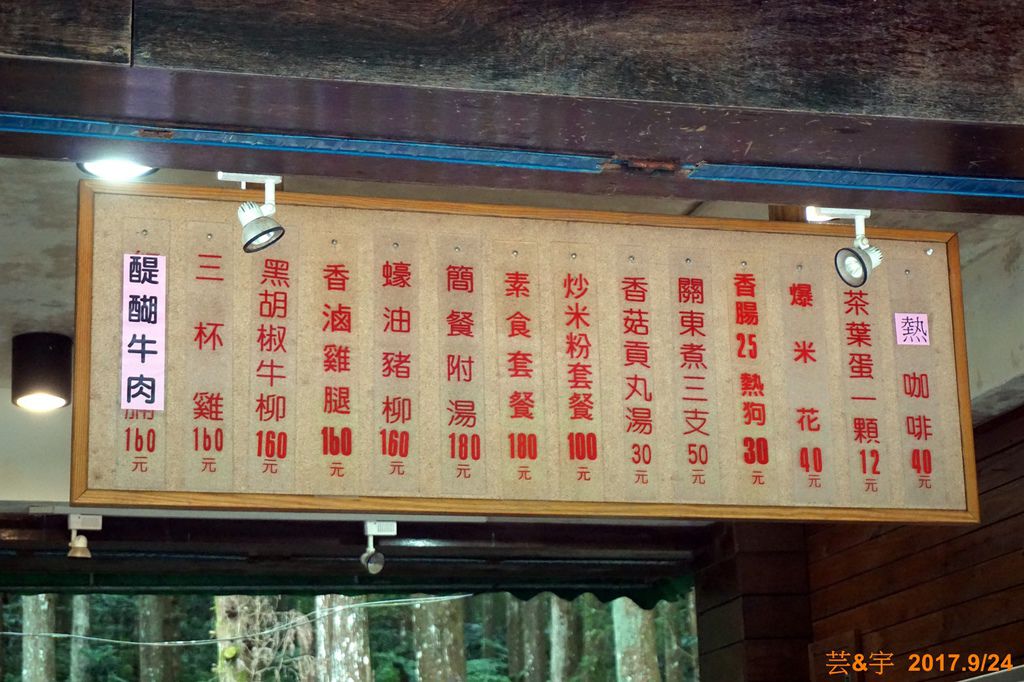 醍醐牛肉 160元
三杯雞 160元
黑胡椒牛柳 160元
香滷雞腿 160元
蠔油豬柳 160元
簡餐附湯 180元
素食套餐 180元
炒米粉套餐 100元
香菇貢丸湯 30元
關東煮三支 50元
香腸25 熱狗30元
爆米花 40元
茶葉蛋一顆 12元
熱咖啡 40元
芸&宇 2017.9/24